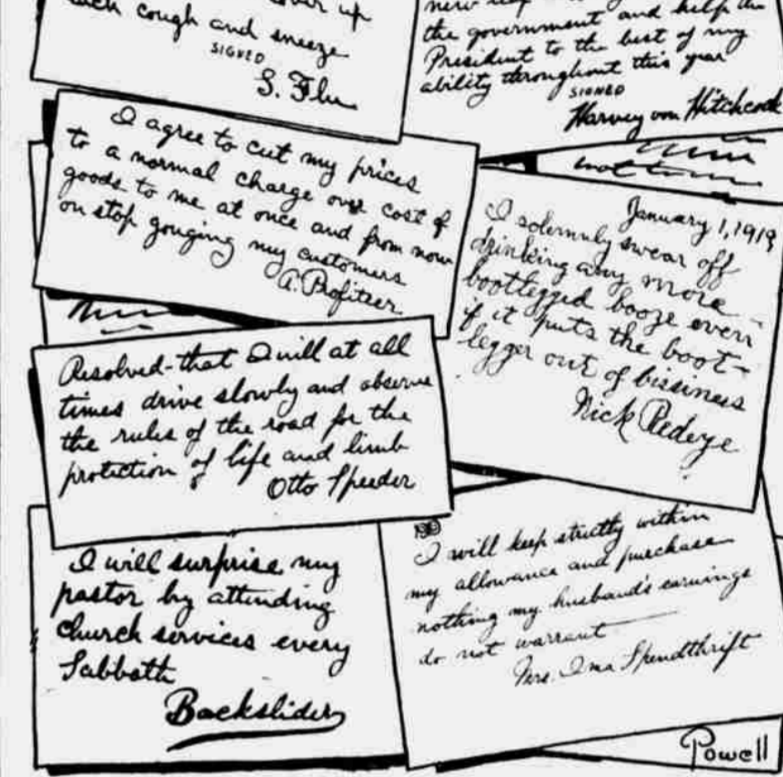 cover up
each cough and sneeze
SIGNED
S. Flu
the government and help the
President to the best of my
ability throughout this year
SIGNED
Harvey von Hitchcock
I agree to cut my prices
to a normal charge over cost of
goods to me at once and from now
on stop gouging my customers
A. Profiteer
January 1, 1919
I solemnly swear off
drinking any more
bootlegged booze even
if it puts the boot-
legger out of bissiness
Nick Redeye
Resolved-that I will at all
times drive slowly and observe
the rules of the road for the
protection of life and limb
Otto Speeder
I will surprise my
pastor by attending
church services every
Sabbath
Backslider
I will keep strictly within
my allowance and purchase
nothing my husband's earnings
do not warrant
Mrs. Ima Spendthrift
Powell